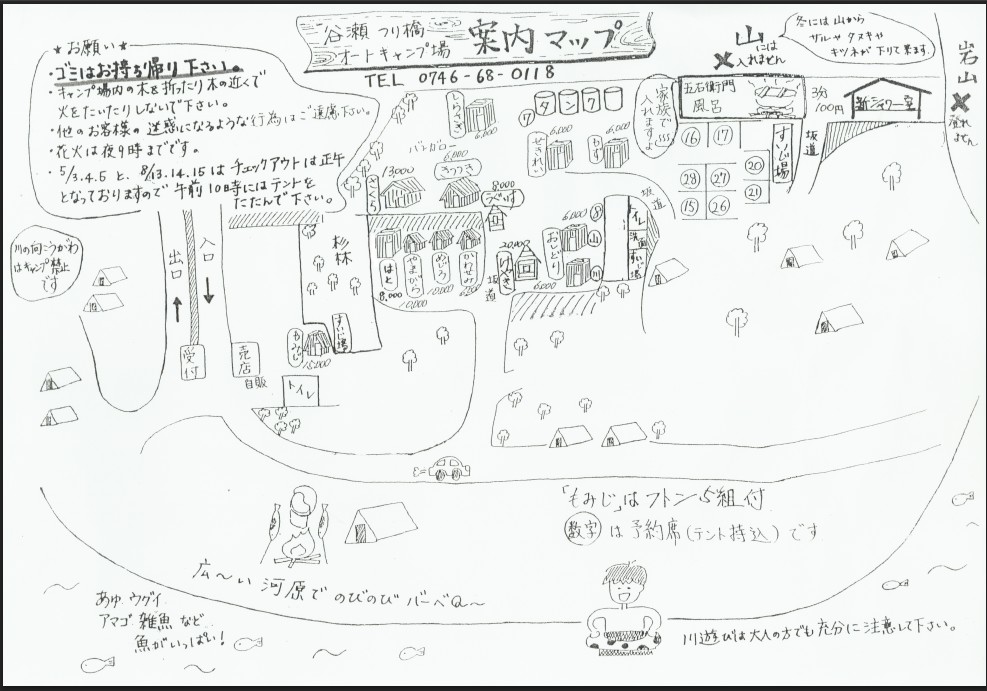 谷瀬 つり橋
オートキャンプ場 案内マップ
TEL 0746-68-0118
★お願い★
・ゴミはお持ち帰り下さい。
・キャンプ場内の木を折ったり木の近くで
火をたいたりしないで下さい。
・他のお客様の迷惑になるような行為はご遠慮下さい。
・花火は夜9時までです。
・5/3.4.5 と、8/13.14.15 は チェックアウトは正午
となっておりますので 午前10時にはテントを
たたんで下さい。
山
には
入れません
冬には山から
サルやタヌキや
キツネが下りて来ます。
岩山
登れません
家族で
入れますよ
五右衛門
風呂
3分
100円
新シャワー室
すいじ場
坂道
⑯ ⑰
⑳
㉘ ㉗
㉑
⑮ ㉖
⑦ タンク
6,000
せきれい
6,000
6,000
バンガロー
6,000
きつつき
13,000
さくら
8,000
うぐいす
はと
8,000
やまがら
10,000
10,000
かわせみ
20,000
坂道
おしどり
6,000
6,000
⑧
山
川
トイレ
洗面
すいじ場
坂道
川の向こうがわ
はキャンプ禁止
です
出口
入口
受付
売店
自販
杉林
もみじ
15,000
すいじ場
トイレ
「もみじ」はフトン5組付
数字 は予約席(テント持込)です
広〜い 河原で のびのび バーベQ〜
あゆ ウグイ
アマゴ 雑魚 など
魚がいっぱい!
川遊びは大人の方でも充分に注意して下さい。